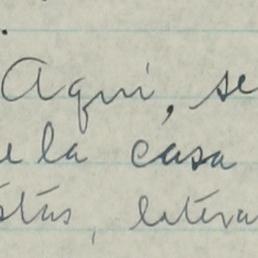 Aquí, se
e la casa
stas, litera